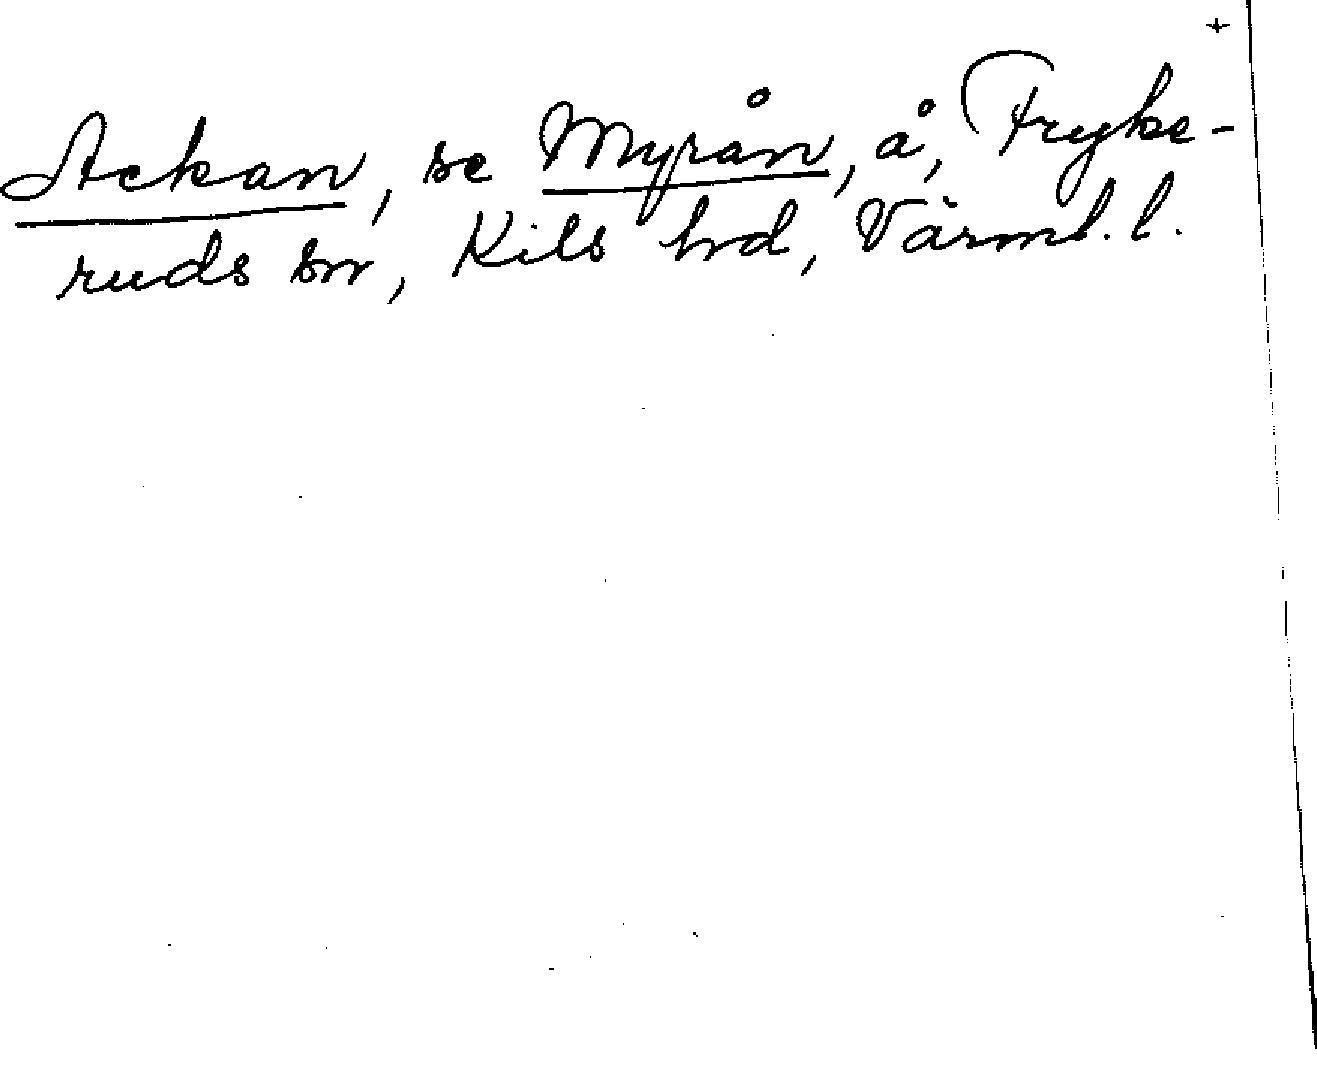 Ackan, se Myrån, å, Fryke-
ruds sn, Kils hd, Värml. l.